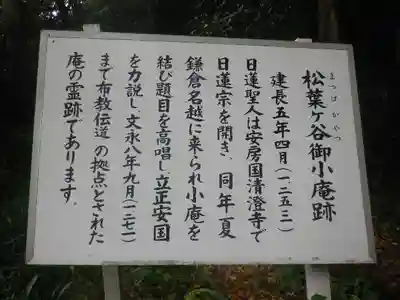 まつばがやつ
松葉ヶ谷御小庵跡
建長五年四月(一二五三)
日蓮聖人は安房国清澄寺で
日蓮宗を開き、同年夏
鎌倉名越に来られ小庵を
結び題目を高唱し立正安国
を力説し、文永八年九月(一二七一)
まで布教伝道の拠点とされた
庵の霊跡であります。